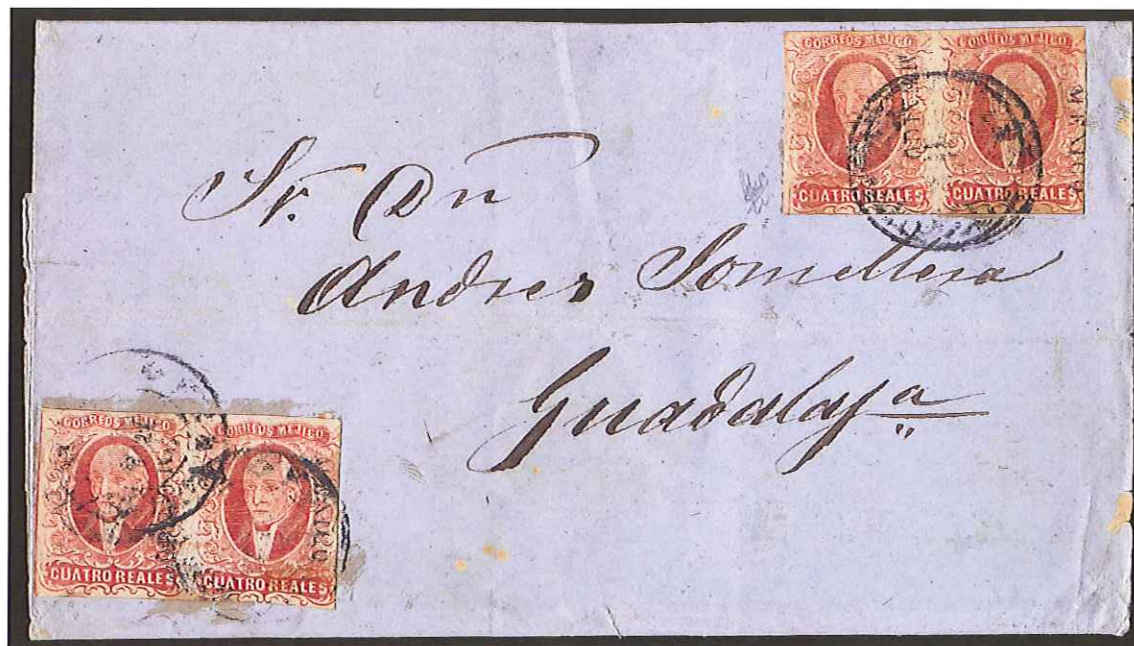 CORREOS MEJICO
CORREOS MEJICO
CUATRO REALES
CUATRO REALES
Sr. Dn
Andres Somellera
Guadalaja
CORREOS MEJICO
CORREOS MEJICO
CUATRO REALES
CUATRO REALES